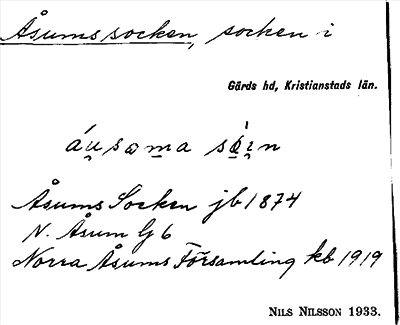 Åsums socken, socken i
Gärds hd, Kristianstads län.
Åsums Socken jb 1874
N. Åsum Gj 6
Norra Åsums Församling kb 1919
NILS NILSSON 1933.